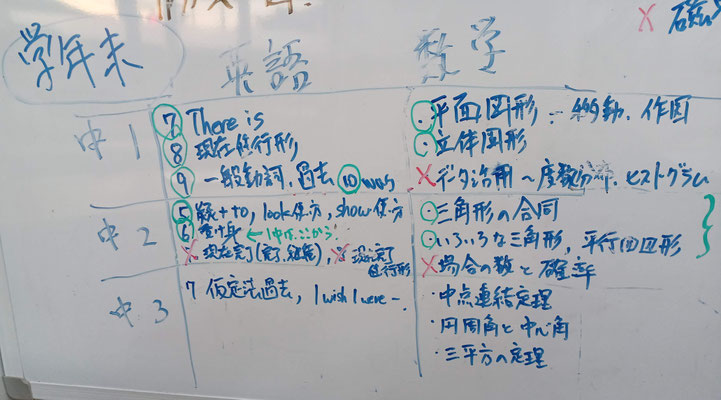 学年末
英語
数学
磁
中1
⑦ There is
⑧ 現在進行形
⑨ 一般動詞.過去 ⑩ was
・平面図形:移動.作図
・立体図形
×データ活用〜度数分布.ヒストグラム
中2
⑤ 疑+to, look使方, show使方
⑥ 受け身 ←1中は、ここから!
× 現在完了(完了,継続), × 現在完了進行形
・三角形の合同
・いろいろな三角形,平行四辺形
×場合の数と確率
中3
7 仮定法過去, I wish I were 〜.
・中点連結定理
・円周角と中心角
・三平方の定理